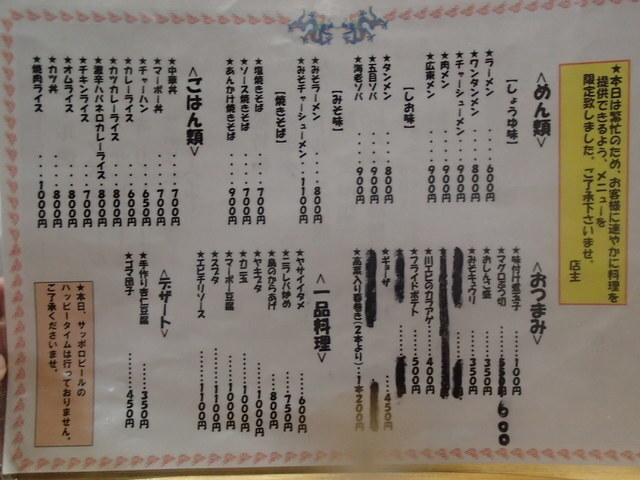 ★本日は繁忙のため、お客様に速やかに料理を
提供できるよう、メニューを
限定致しました。ご了承下さいませ。
店主
<めん類>
[しょうゆ味]
★ラーメン・・・・600円
★ワンタンメン・・・800円
★チャーシューメン・・900円
★肉メン・・・・900円
★広東メン・・・900円
[しお味]
★タンメン・・・・800円
★五目ソバ・・・・900円
★海老ソバ・・・・900円
[みそ味]
★みそラーメン・・・800円
★みそチャーシューメン・・1100円
[焼きそば]
★塩焼きそば・・・700円
★ソース焼きそば・・・700円
★あんかけ焼きそば・・・900円
<ごはん類>
★中華丼・・・700円
★マーボー丼・・・700円
★チャーハン・・・650円
★カレーライス・・・600円
★カツカレーライス・・・800円
★激辛ハバネロカレーライス・800円
★チキンライス・・・700円
★オムライス・・・800円
★カツ丼・・・800円
★焼肉ライス・・・1000円
<おつまみ>
★味付け煮玉子・・・・100円
★マグロぶつ切・・・600
★おしんこ盛・・・・350円
★みそキュウリ・・・・350円
★川エビのカラアゲ・・・400円
★フライドポテト・・・・500円
★ギョーザ・・・・450円
★高菜入り春巻き(2本より)・1本200円
<一品料理>
★ヤサイイタメ・・・・600円
★ニラレバ炒め・・・・750円
★鳥のからあげ・・・・800円
★ヤキブタ・・・・1000円
★カニ玉・・・・1000円
★マーボー豆腐・・・・1000円
★スブタ・・・・1100円
★エビチリソース・・・・1100円
<デザート>
★手作り杏仁豆腐・・・・350円
★ゴマ団子・・・・450円
★本日、サッポロビールの
ハッピータイムは行っておりません。
ご了承くださいませ。